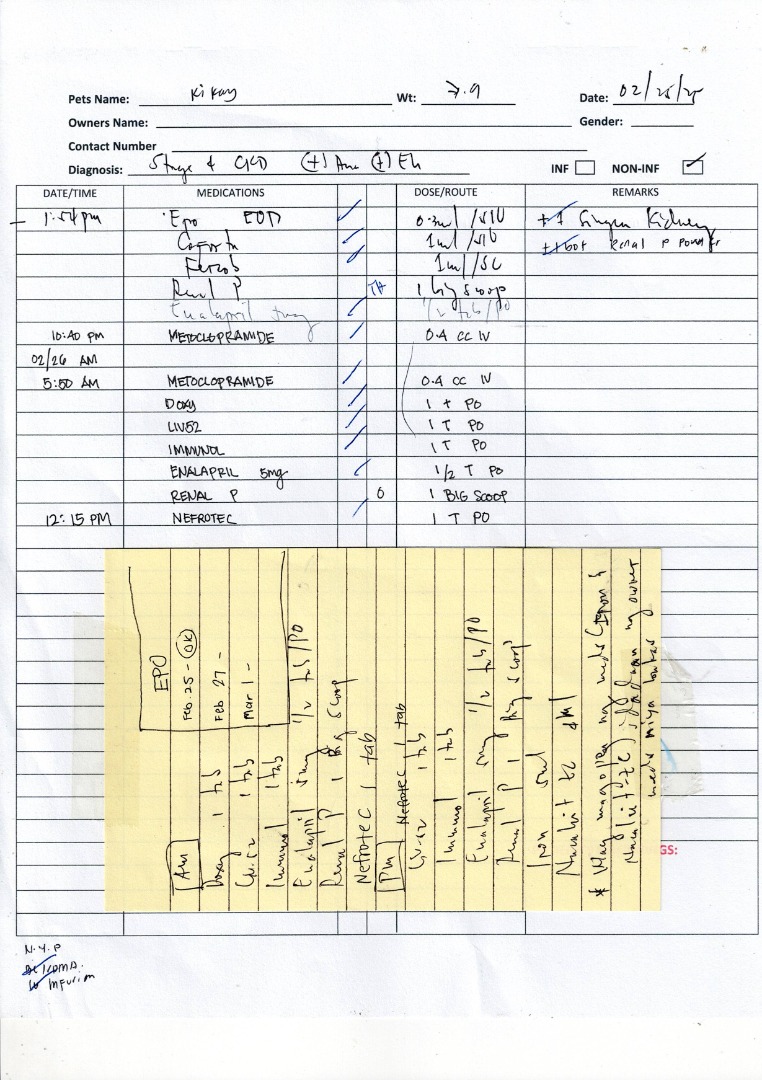 Pets Name: Kikay Wt: 7.9 Date: 02/25/25
Owners Name: Gender:
Contact Number
Diagnosis: Stage 4 CKD (+) Ana (+) Eh INF NON-INF ✓
DATE/TIME MEDICATIONS DOSE/ROUTE REMARKS
1:54pm Epo EOD ✓ 0.3ml /SIU
✓ 1ml /SIU Renal P Powder
✓ 1ml /SC
Renal P TH 1 big scoop
Enalapril 5mg ✓ 1/2 tab/PO
10:40 PM METOCLOPRAMIDE ✓ 0.4 CC IV
02/26 AM
5:50 AM METOCLOPRAMIDE ✓ 0.4 CC IV
DOXY ✓ 1 T PO
LIV52 ✓ 1 T PO
IMMUNOL ✓ 1 T PO
ENALAPRIL 5mg ✓ 1/2 T PO
RENAL P O 1 BIG SCOOP
12:15 PM NEFROTEC ✓ 1 T PO
EPO
Feb. 25 - OK
Feb 27 -
Mar 1 -
AM
Doxy 1 tab
Liv-52 1 tab
Immunol 1 tab
Enalapril 5mg 1/2 tab/PO
Renal P 1 Big Scoop
Nefrotec 1 tab
PM
Nefrotec 1 tab
Liv-52 1 tab
Immunol 1 tab
Enalapril 5mg 1/2 tab/PO
Renal P 1 big scoop
Iron 5ml
Nacalvit tc
* Wag mag ng meds (Iron &
Nacalvit-tc) ng owner
meds niya bukas
GS:
N.Y.P